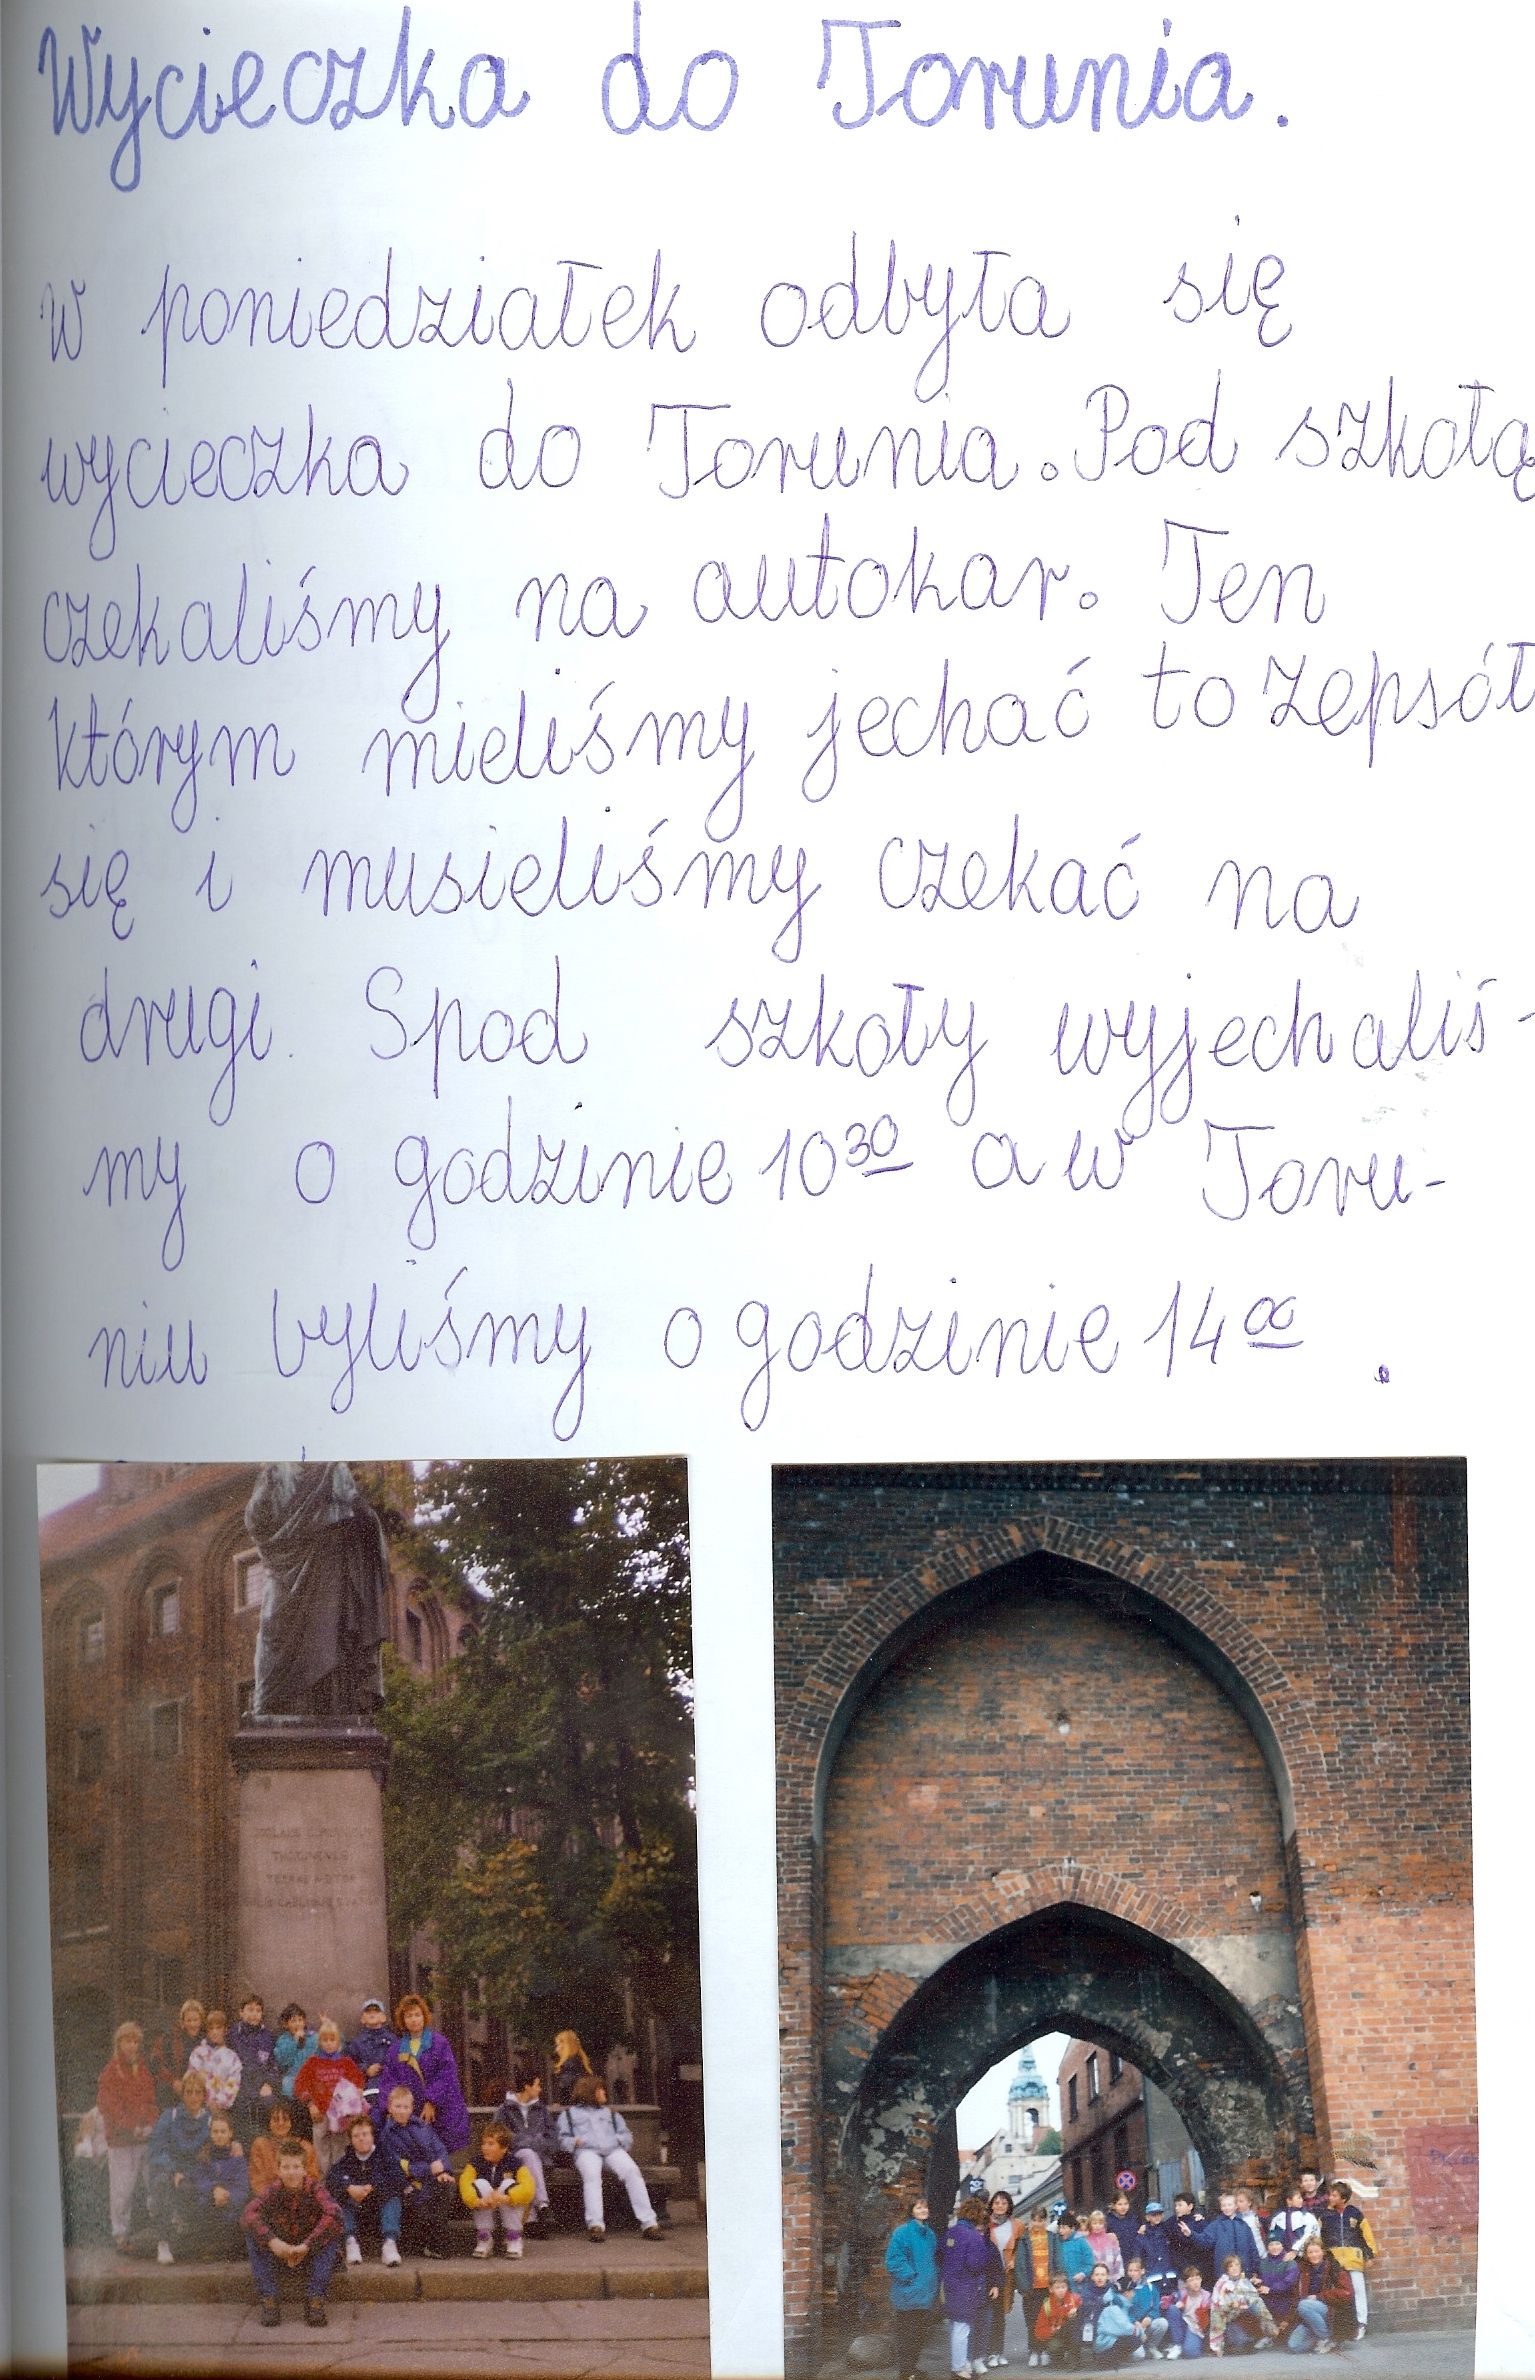 Wycieczka do Torunia.
W poniedziałek odbyła się
wycieczka do Torunia. Pod szkołą
czekaliśmy na autokar. Ten
którym mieliśmy jechać to zepsół
się i musieliśmy czekać na
drugi. Spod szkoły wyjechaliś-
my o godzinie 10 30 a w Toru-
niu byliśmy o godzinie 14 00.
THORUNENSIS